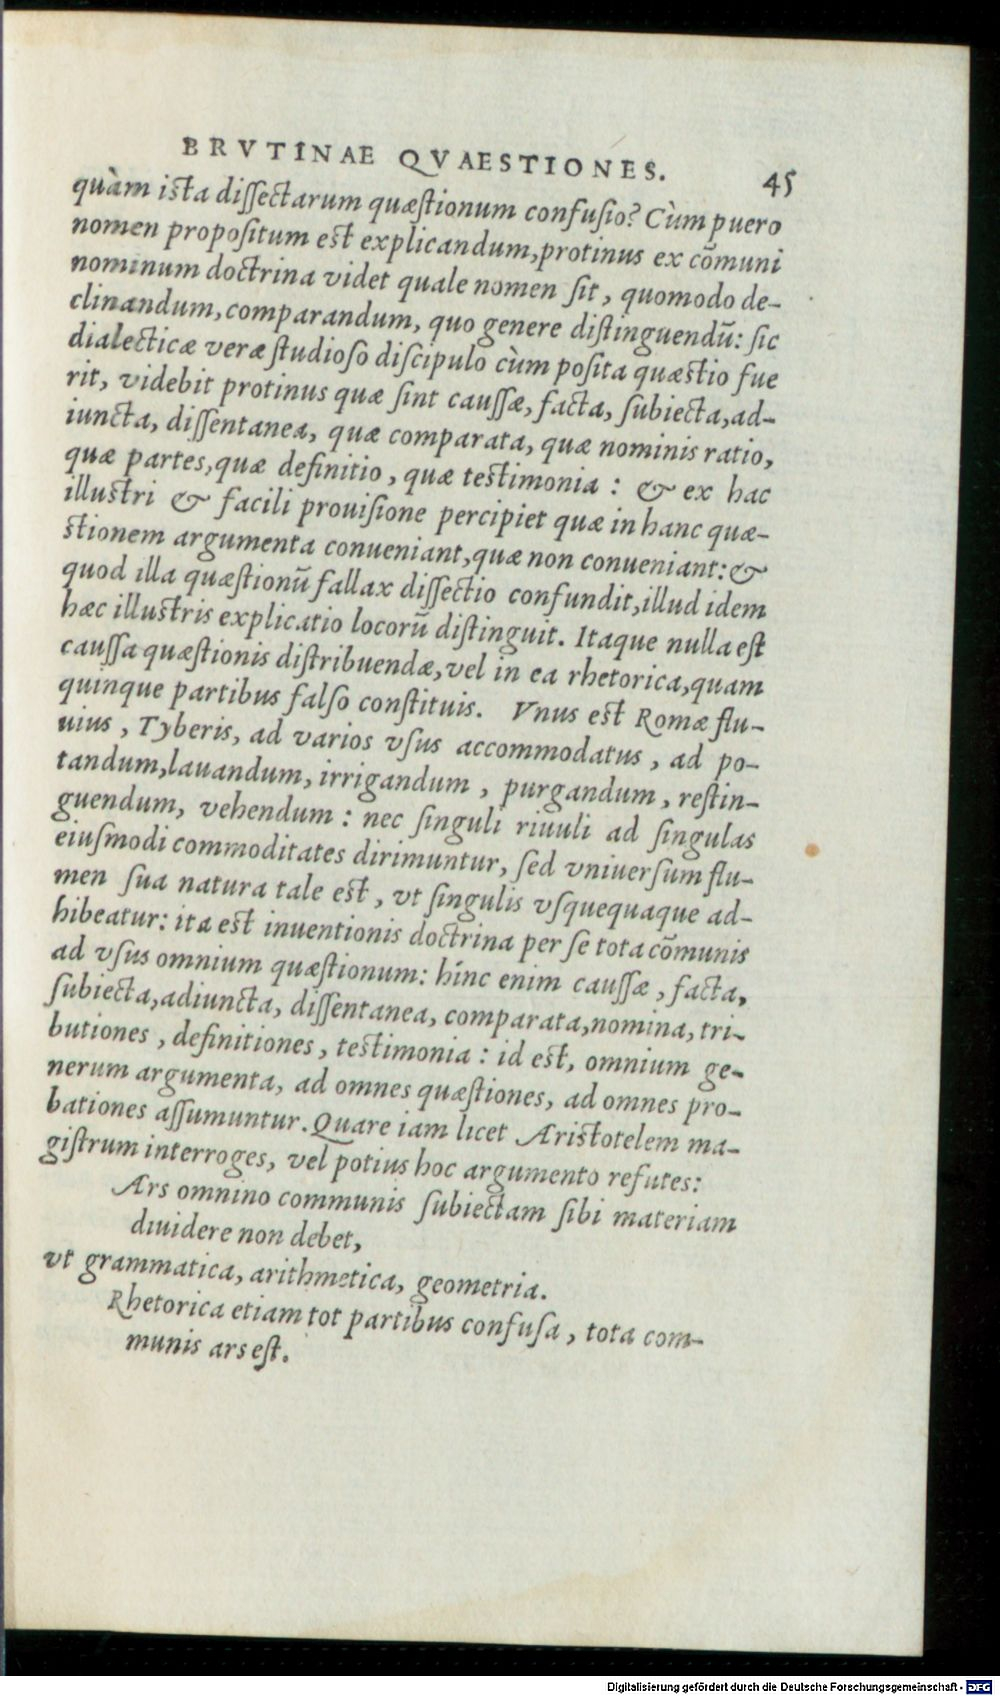 BRVTINAE QVAESTIONES. 45
quàm ista dissectarum quæstionum confusio? Cùm puero
nomen propositum est explicandum, protinus ex cōmuni
nominum doctrina videt quale nomen sit, quomodo de-
clinandum, comparandum, quo genere distinguendū: sic
dialecticæ veræ studioso discipulo cùm posita quæstio fue
rit, videbit protinus quæ sint caussæ, facta, subiecta, ad-
iuncta, dissentanea, quæ comparata, quæ nominis ratio,
quæ partes, quæ definitio, quæ testimonia: & ex hac
illustri & facili prouisione percipiet quæ in hanc quæ-
stionem argumenta conueniant, quæ non conueniant: &
quod illa quæstionū fallax dissectio confundit, illud idem
hæc illustris explicatio locorū distinguit. Itaque nulla est
caussa quæstionis distribuendæ, vel in ea rhetorica, quam
quinque partibus falso constituis. Vnus est Romæ flu-
uius, Tyberis, ad varios vsus accommodatus, ad po-
tandum, lauandum, irrigandum, purgandum, restin-
guendum, vehendum: nec singuli riuuli ad singulas
eiusmodi commoditates dirimuntur, sed vniuersum flu-
men sua natura tale est, vt singulis vsquequaque ad-
hibeatur: ita est inuentionis doctrina per se tota cōmunis
ad vsus omnium quæstionum: hinc enim caussæ, facta,
subiecta, adiuncta, dissentanea, comparata, nomina, tri-
butiones, definitiones, testimonia: id est, omnium ge-
nerum argumenta, ad omnes quæstiones, ad omnes pro-
bationes assumuntur. Quare iam licet Aristotelem ma-
gistrum interroges, vel potius hoc argumento refutes:
Ars omnino communis subiectam sibi materiam
diuidere non debet,
vt grammatica, arithmetica, geometria.
Rhetorica etiam tot partibus confusa, tota com-
munis ars est.
Digitalisierung gefördert durch die Deutsche Forschungsgemeinschaft - DFG